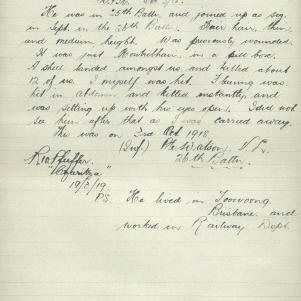 He was in 25th Battn, and joined up as sig.
in Sept. in the 26th Battn. Fair hair, thin
and medium height. Was previously wounded.
It was just Montbrehain, in a pill box.
A shell landed amongst us and killed about
12 of us. I myself was hit. Fleming was
hit in Abdomen and killed instantly, and
was sitting up with his eyes open. I did not
see him after that as I was carried away.
He was on 2nd Oct 1918.
(Inf) Pte Watson,
26th Battn.
19/3/19.
P.S. He lived in Toowong
Brisbane and
worked in Railway Dept.